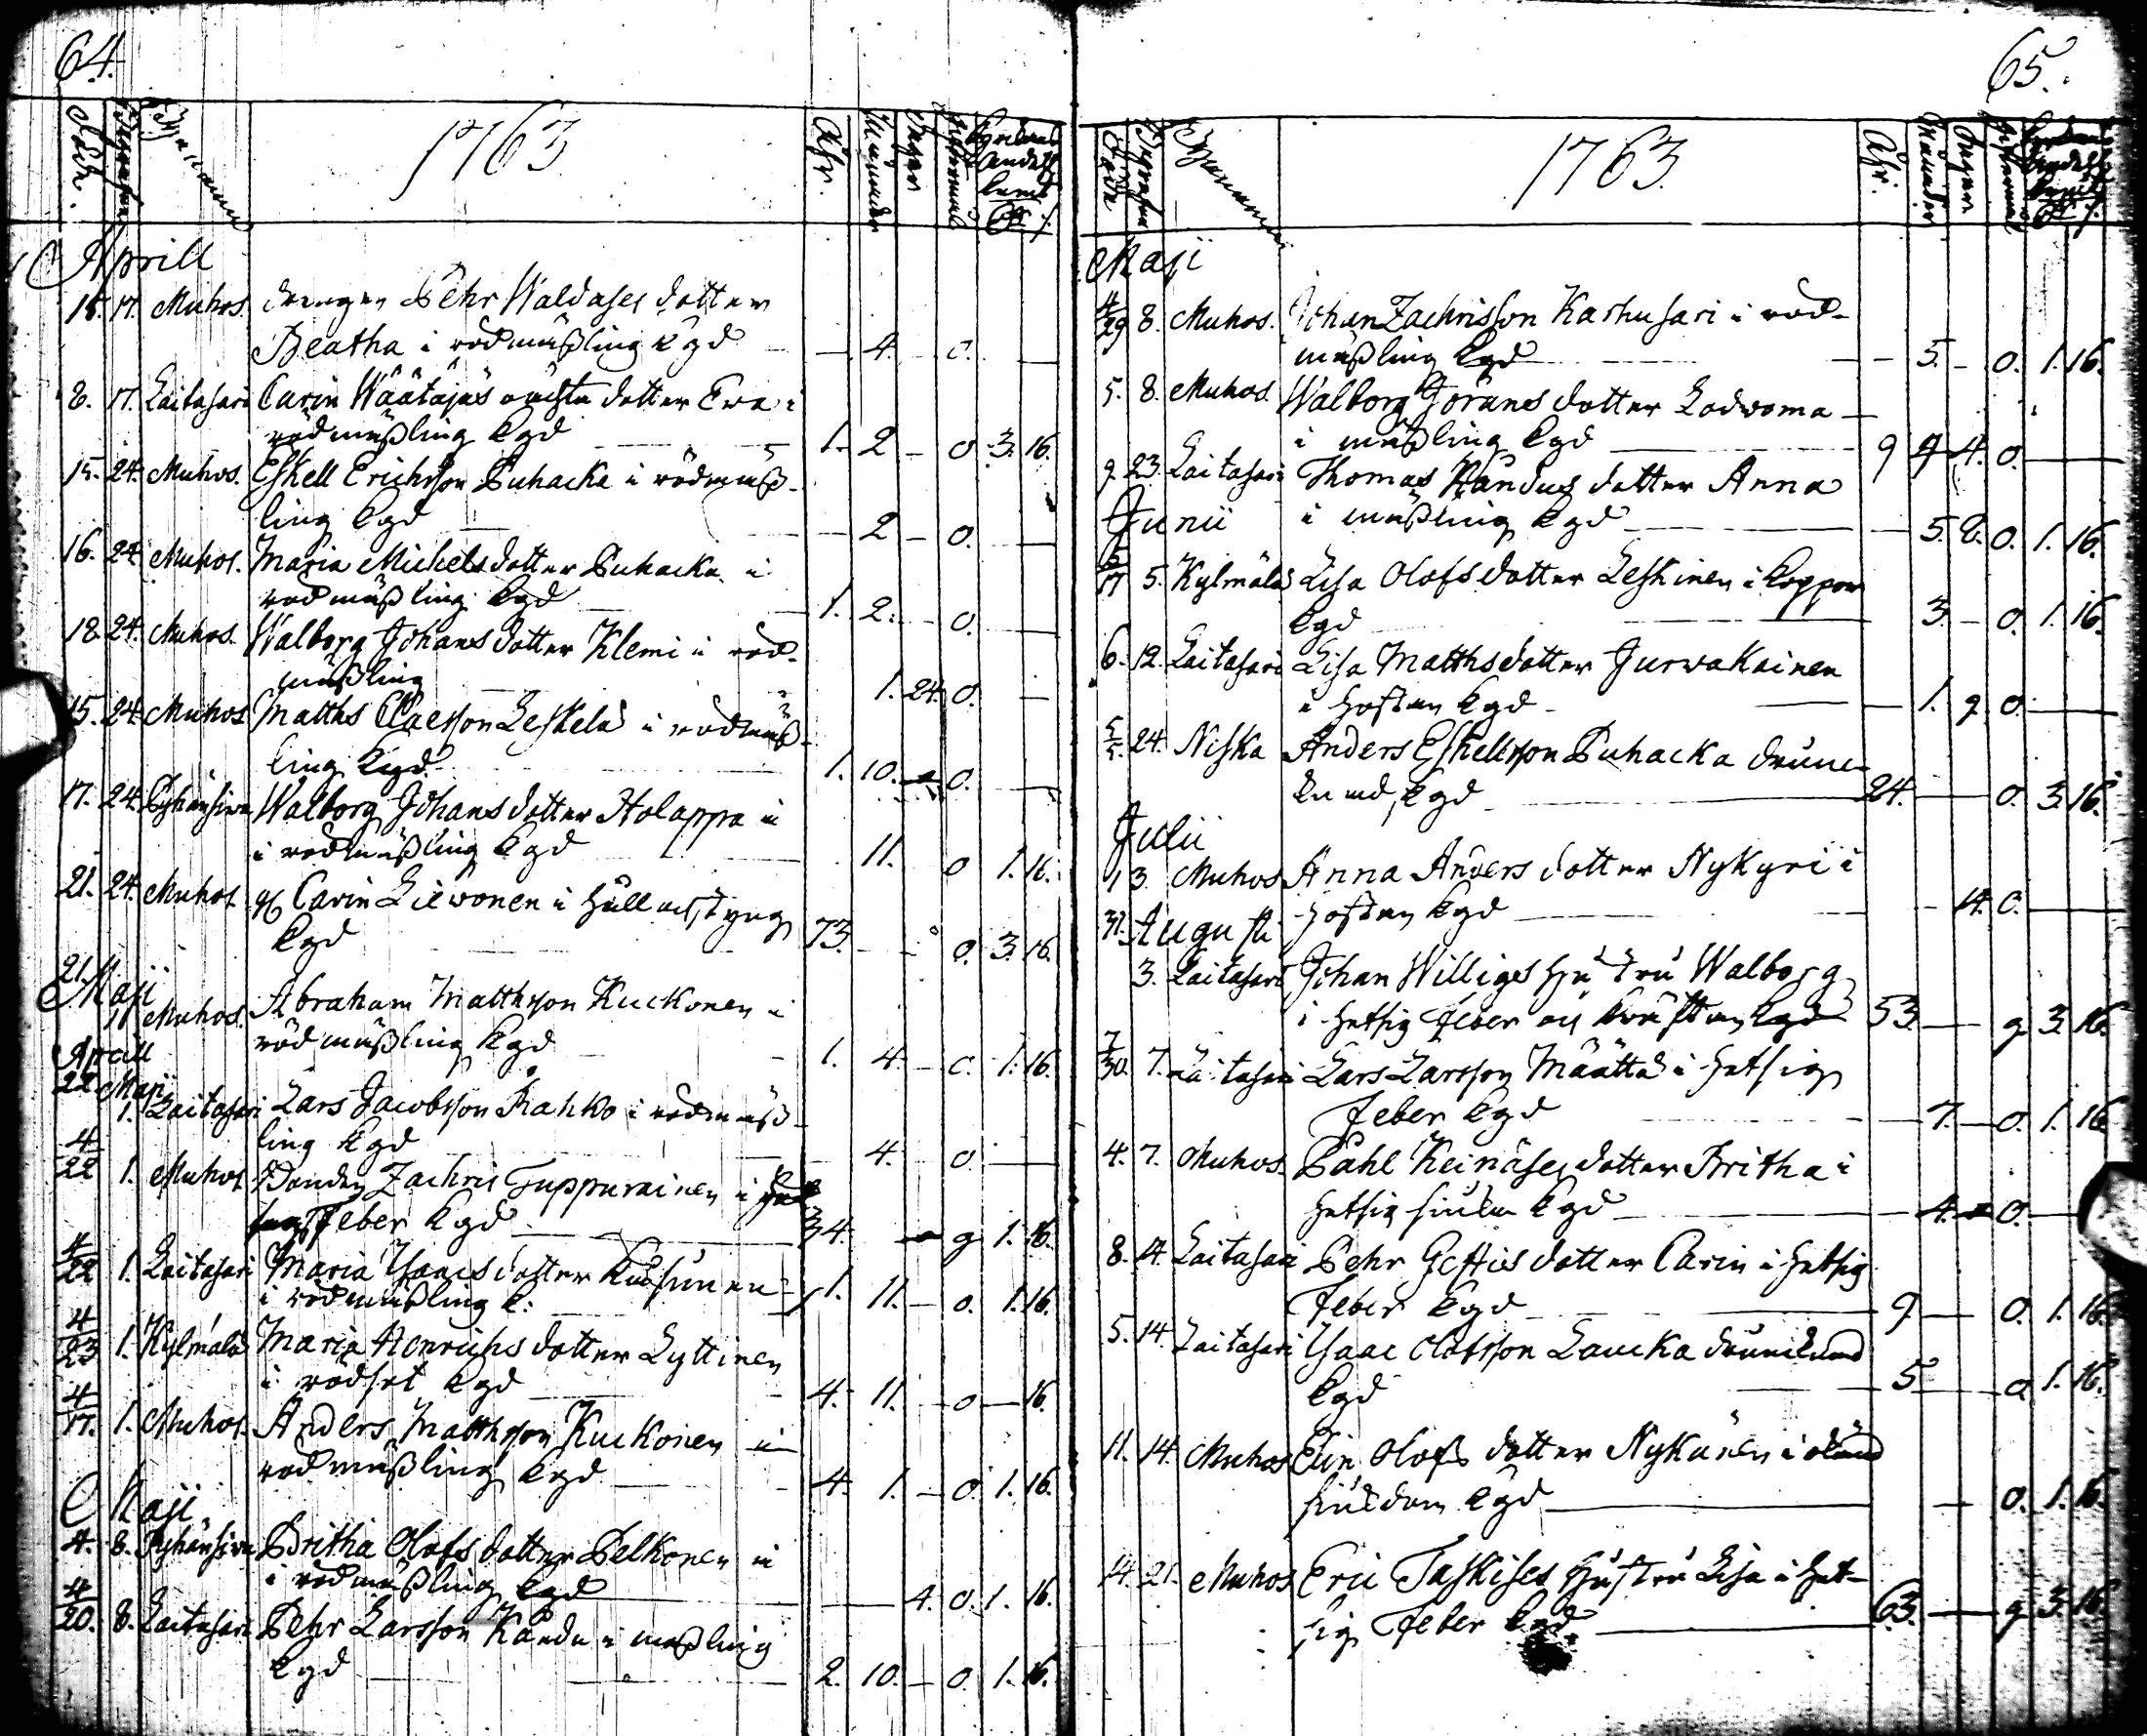 64.
Döde. Begrafne Byarnamn 1763 Åhr. Månader Dagar
Aprill
15. 17. Muhos. drengen Pehr Waldases dotter
Beatha i rödmäßling kgd — 4. — o. —
8. 17. Laitasari Carin Wäätäjäs oächta dotter Ewa i
rödmäßling kgd 1. 2 — o 3. 16.
15. 24. Muhos. Eskell Erichsson Puhacka i rödmäß-
ling kgd — 2 — o. —
16. 24. Muhos. Maria Michelsdotter Puhacka i
rödmäßling kgd 1. 2. — o. —
18. 24. Muhos. Walborg Johansdotter Klemi i röd-
mäßling 1. 24. o. —
15. 24. Muhos Matths Claesson Leskelä i rödmäß-
ling kgd. 1. 10. — o. —
17. 24. Pyhänsiwu Walborg Johansdotter Holappa i
i rödmäßling kgd 11. o 1. 16.
21. 24. Muhos Carin Liewonen i håll och styng
kgd 73. — o. 3. 16.
21. Maji
11 Muhos. Abraham Matthsson Kuckonen i
rödmäßling kgd 1. 4. — o. 1. 16.
Aprill
22 Maji
1. Laitasari Lars Jacobsson Rahko i rödmäß-
ling kgd 4. o. —
4/22 1. Muhos Bonden Zachris Tuppurainen i het-
sig Feber kgd 34. — g 1. 16.
4/22 1. Laitasari Maria Isaacsdotter Kuosmunen
i rödmäßling k: 1. 11. — o. 1. 16.
4/23 1. Kylmälä Maria Henrichsdotter Lyttinen
i rödsot kgd 4. 11. — o — 16.
4/17. 1. Muhos. Anders Matthsson Kuckonen i
rödmäßling kgd 4. 1. — o. 1. 16.
Maji
4. 8. Pyhänsiwu Britha Olofsdotter Pelkonen i
i rödmäßling kgd — 4. o. 1. 16.
4/20. 8. Laitasari Pehr Larsson Kändu i mäßling
kgd 2. 10. — o. 1. 16.
65.
Döde Begrafne Byarnamn 1763. Åhr. Månader Dagar
Maji
4/29 8. Muhos. Johan Zachrisson Karhusari i röd-
mäßling kgd — 5. — o. 1. 16.
5. 8. Muhos. Walborg Göransdotter Lodwoma
i mäßling kgd 9 9 4. o. —
9. 23. Laitasari Thomas Kändus dotter Anna
i mäßling kgd — 5. 8. o. 1. 16.
Junii
5/17 5. Kylmälä Lisa Olofsdotter Leskinen i koppor
kgd 3. — o. 1. 16.
6. 12. Laitasari Lisa Matthsdotter Jurwakainen
i hostan kgd — 1. 9. o. —
5/5. 24. Niska Anders Eskellsson Puhacka drunc-
knad, kgd 24. — o. 3. 16.
Julii
1 3. Muhos Anna Andersdotter Nykyri i
hostan kgd — 14. o. —
31. Augusti
3. Laitasari Johan Williges hustru Walborg
i hetsig Feber och bröstan kgd 53. — g 3. 16.
7/30. 7. Laitasari Lars Larsson Määttä i hetsig
Feber kgd — 7. — o. 1. 16
4. 7. Muhos. Påhl Keinäses dotter Britha i
hetsig siuka kgd — 4. — o. —
8. 14. Laitasari Pehr Göstas dotter Carin i hetsig
Feber kgd 9 — o. 1. 16.
5. 14. Laitasari Isaac Olofsson Laucka drunknad
kgd 5 — o 1. 16.
11. 14. Muhos Elin Olofsdotter Nykänen i okänd
siukdom kgd — o. 1. 16.
14. 21. Muhos Eric Taskises hustru Lisa i het-
sig Feber kgd. 63. — g 3. 16.